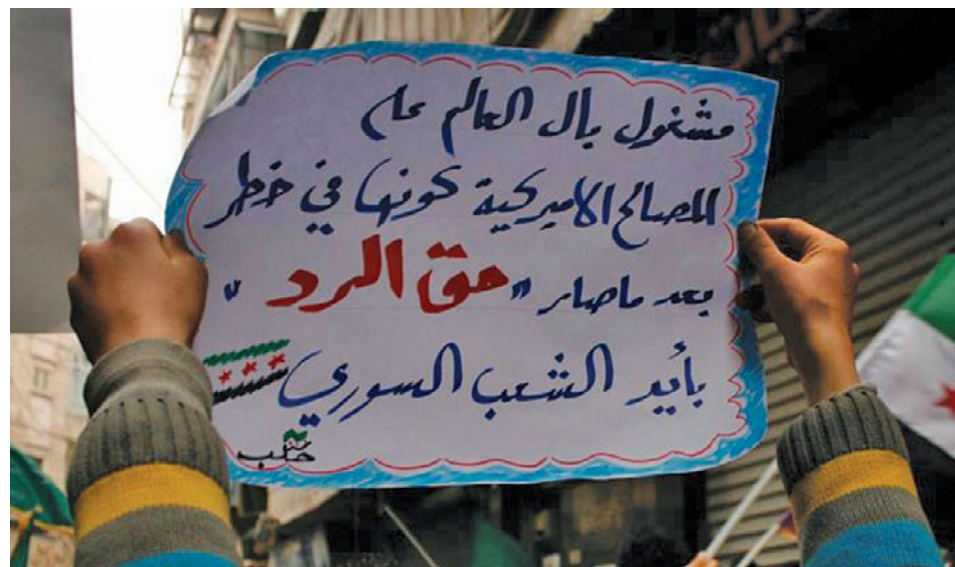 مشغول بال العالم على
المصالح الاميركية كونها في خطر
بعد ماصار "حق الرد"
بأيد الشعب السوري
حلب